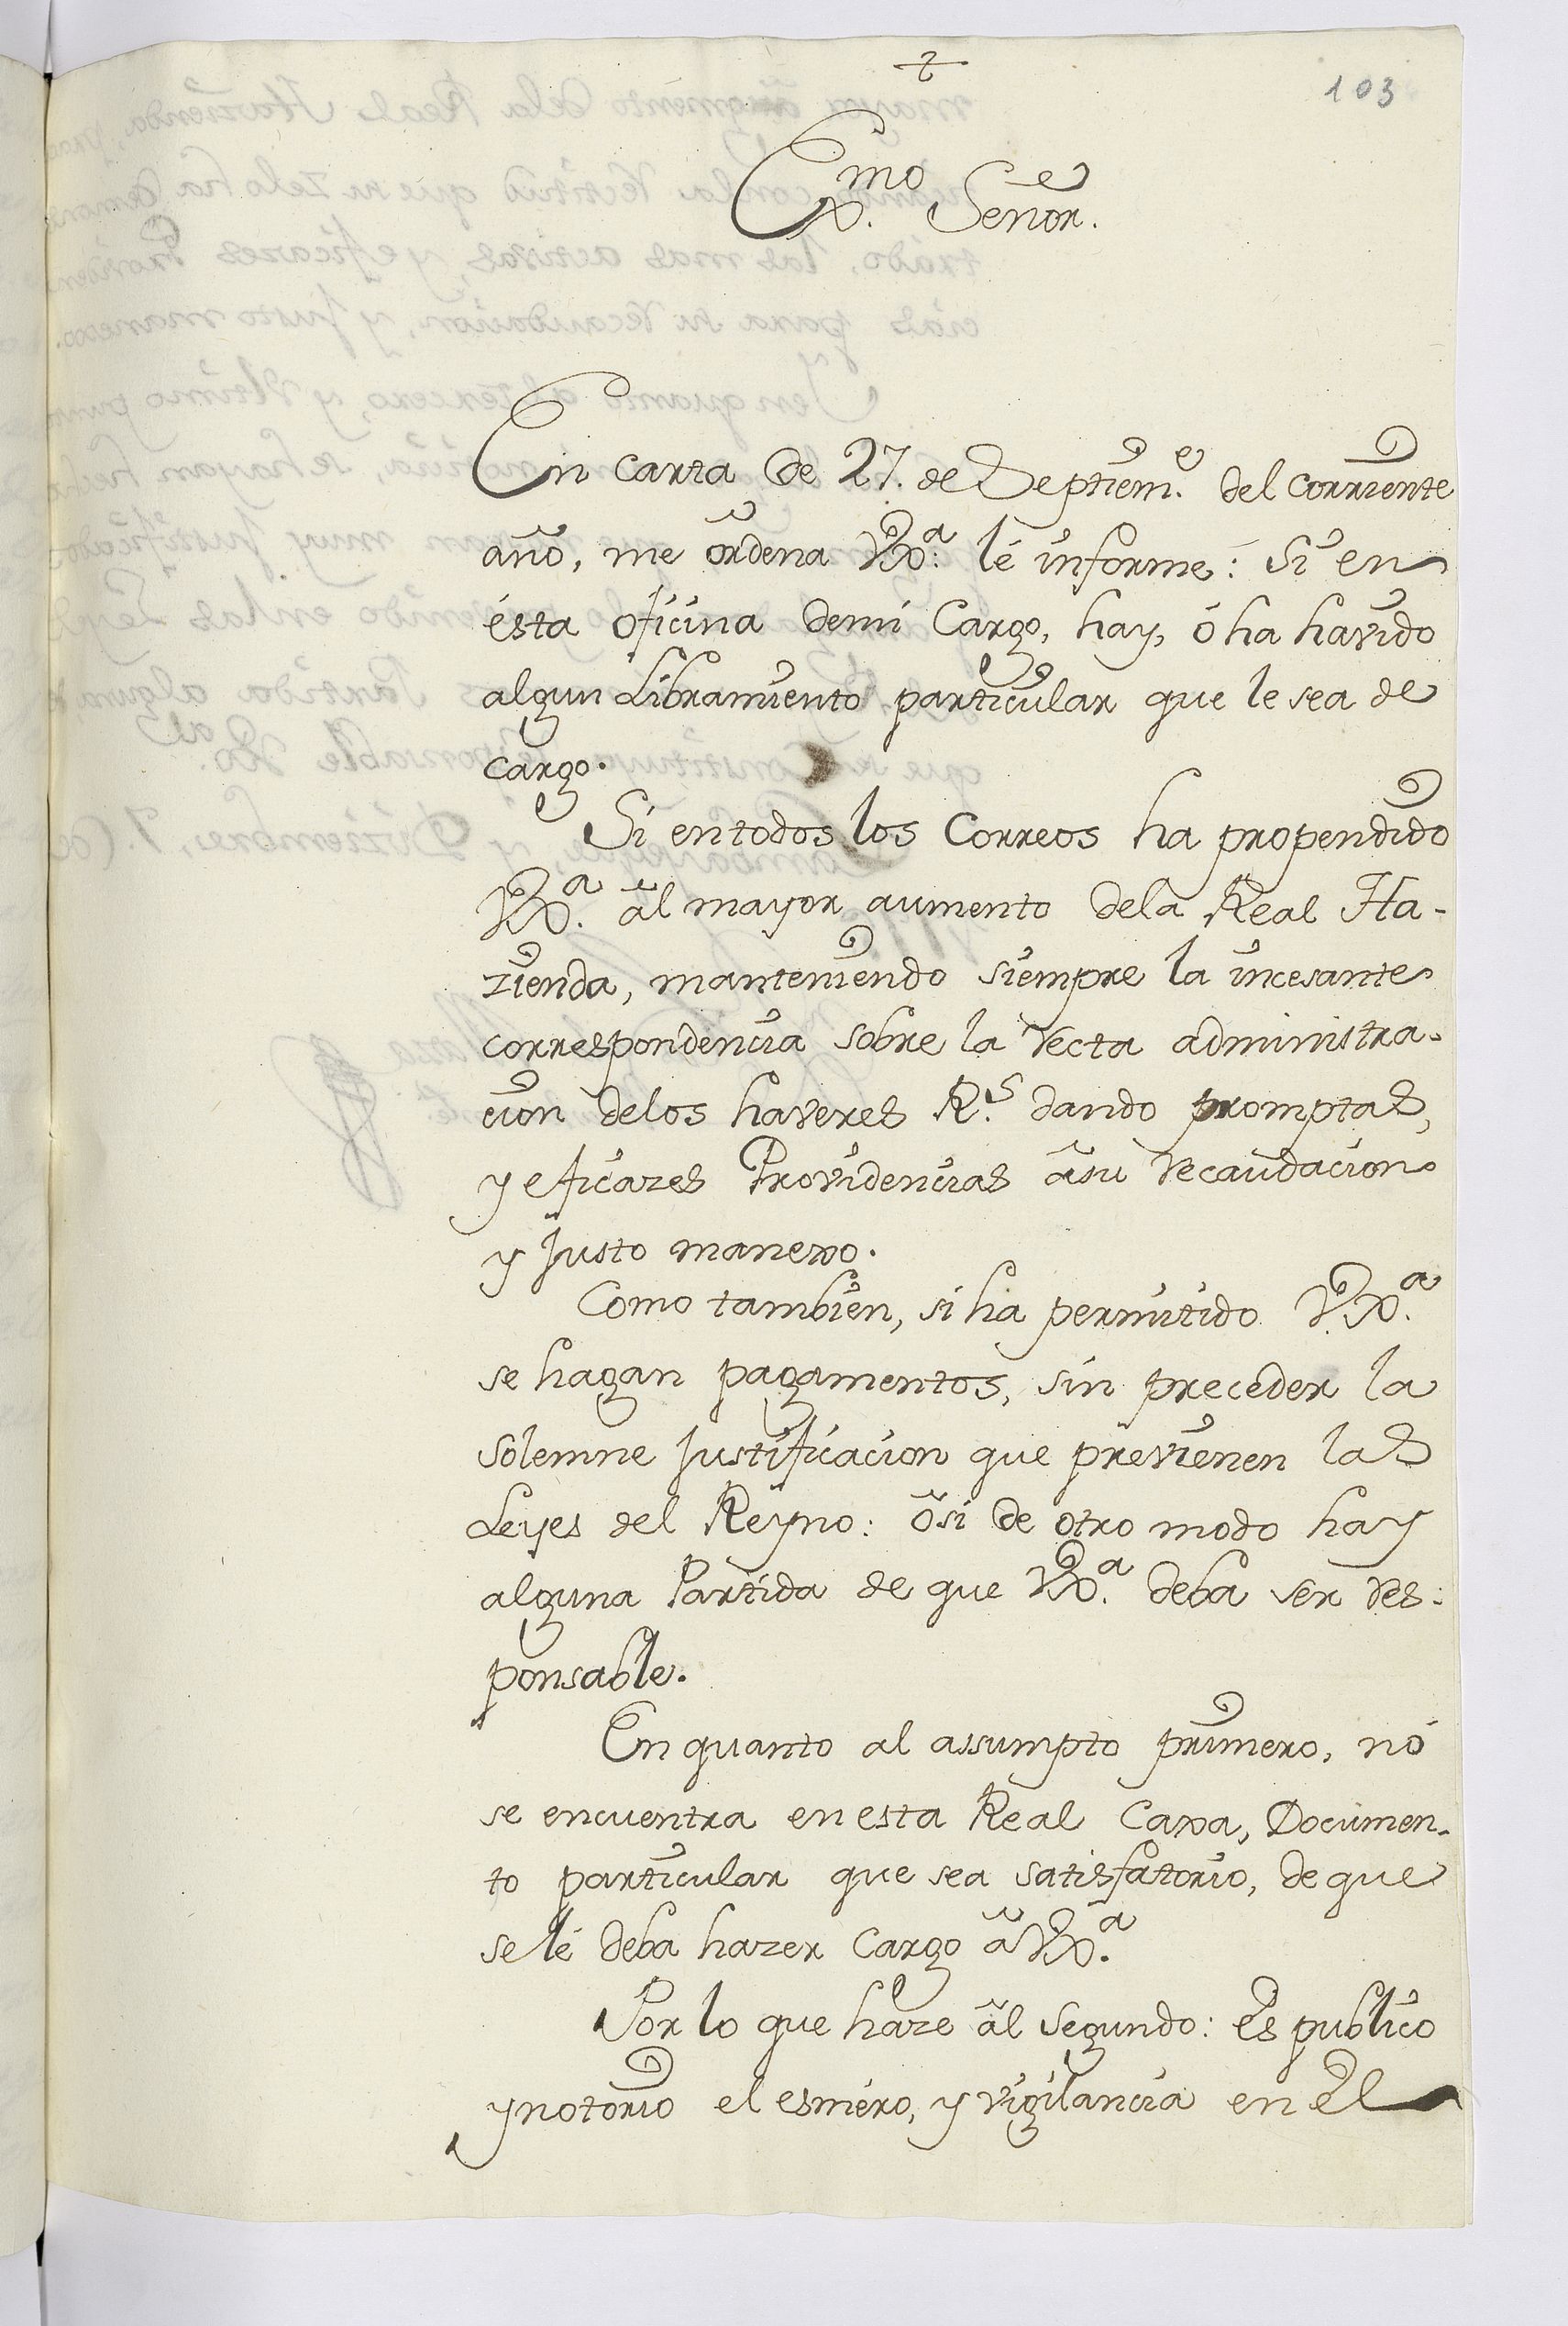 103
Exmo. Señor.
En carta de 27. de Septiem.e del corriente
año, me ordena VEx.a le informe: Si en
ésta oficina demi Cargo, hay, ó ha havido
algun Libramiento particular que le sea de
cargo.
Si entodos los Correos ha propendido
VEx.a âl mayor aumento dela Real Ha-
zienda, manteniendo siempre la incesante
correspondencia sobre la recta administra-
cion delos haveres R.s dando promptas,
y eficazes Providencias âsu recaudacion
y justo manexo.
Como tambien, si ha permitido V.Ex.a
se hagan pagamentos, sin preceder la
solemne justificacion que previenen las
Leyes del Reyno: ôsi de otro modo hay
alguna Partida de que VEx.a deba ser res:
ponsable.
En quanto al assumpto primero, nó
se encuentra en esta Real Caxa, Documen-
to particular que sea satisfatorio, de que
se lé deba hazer cargo â VEx.a
Por lo que haze âl segundo: Es publico
y notorio el esmero, y vigilancia en El